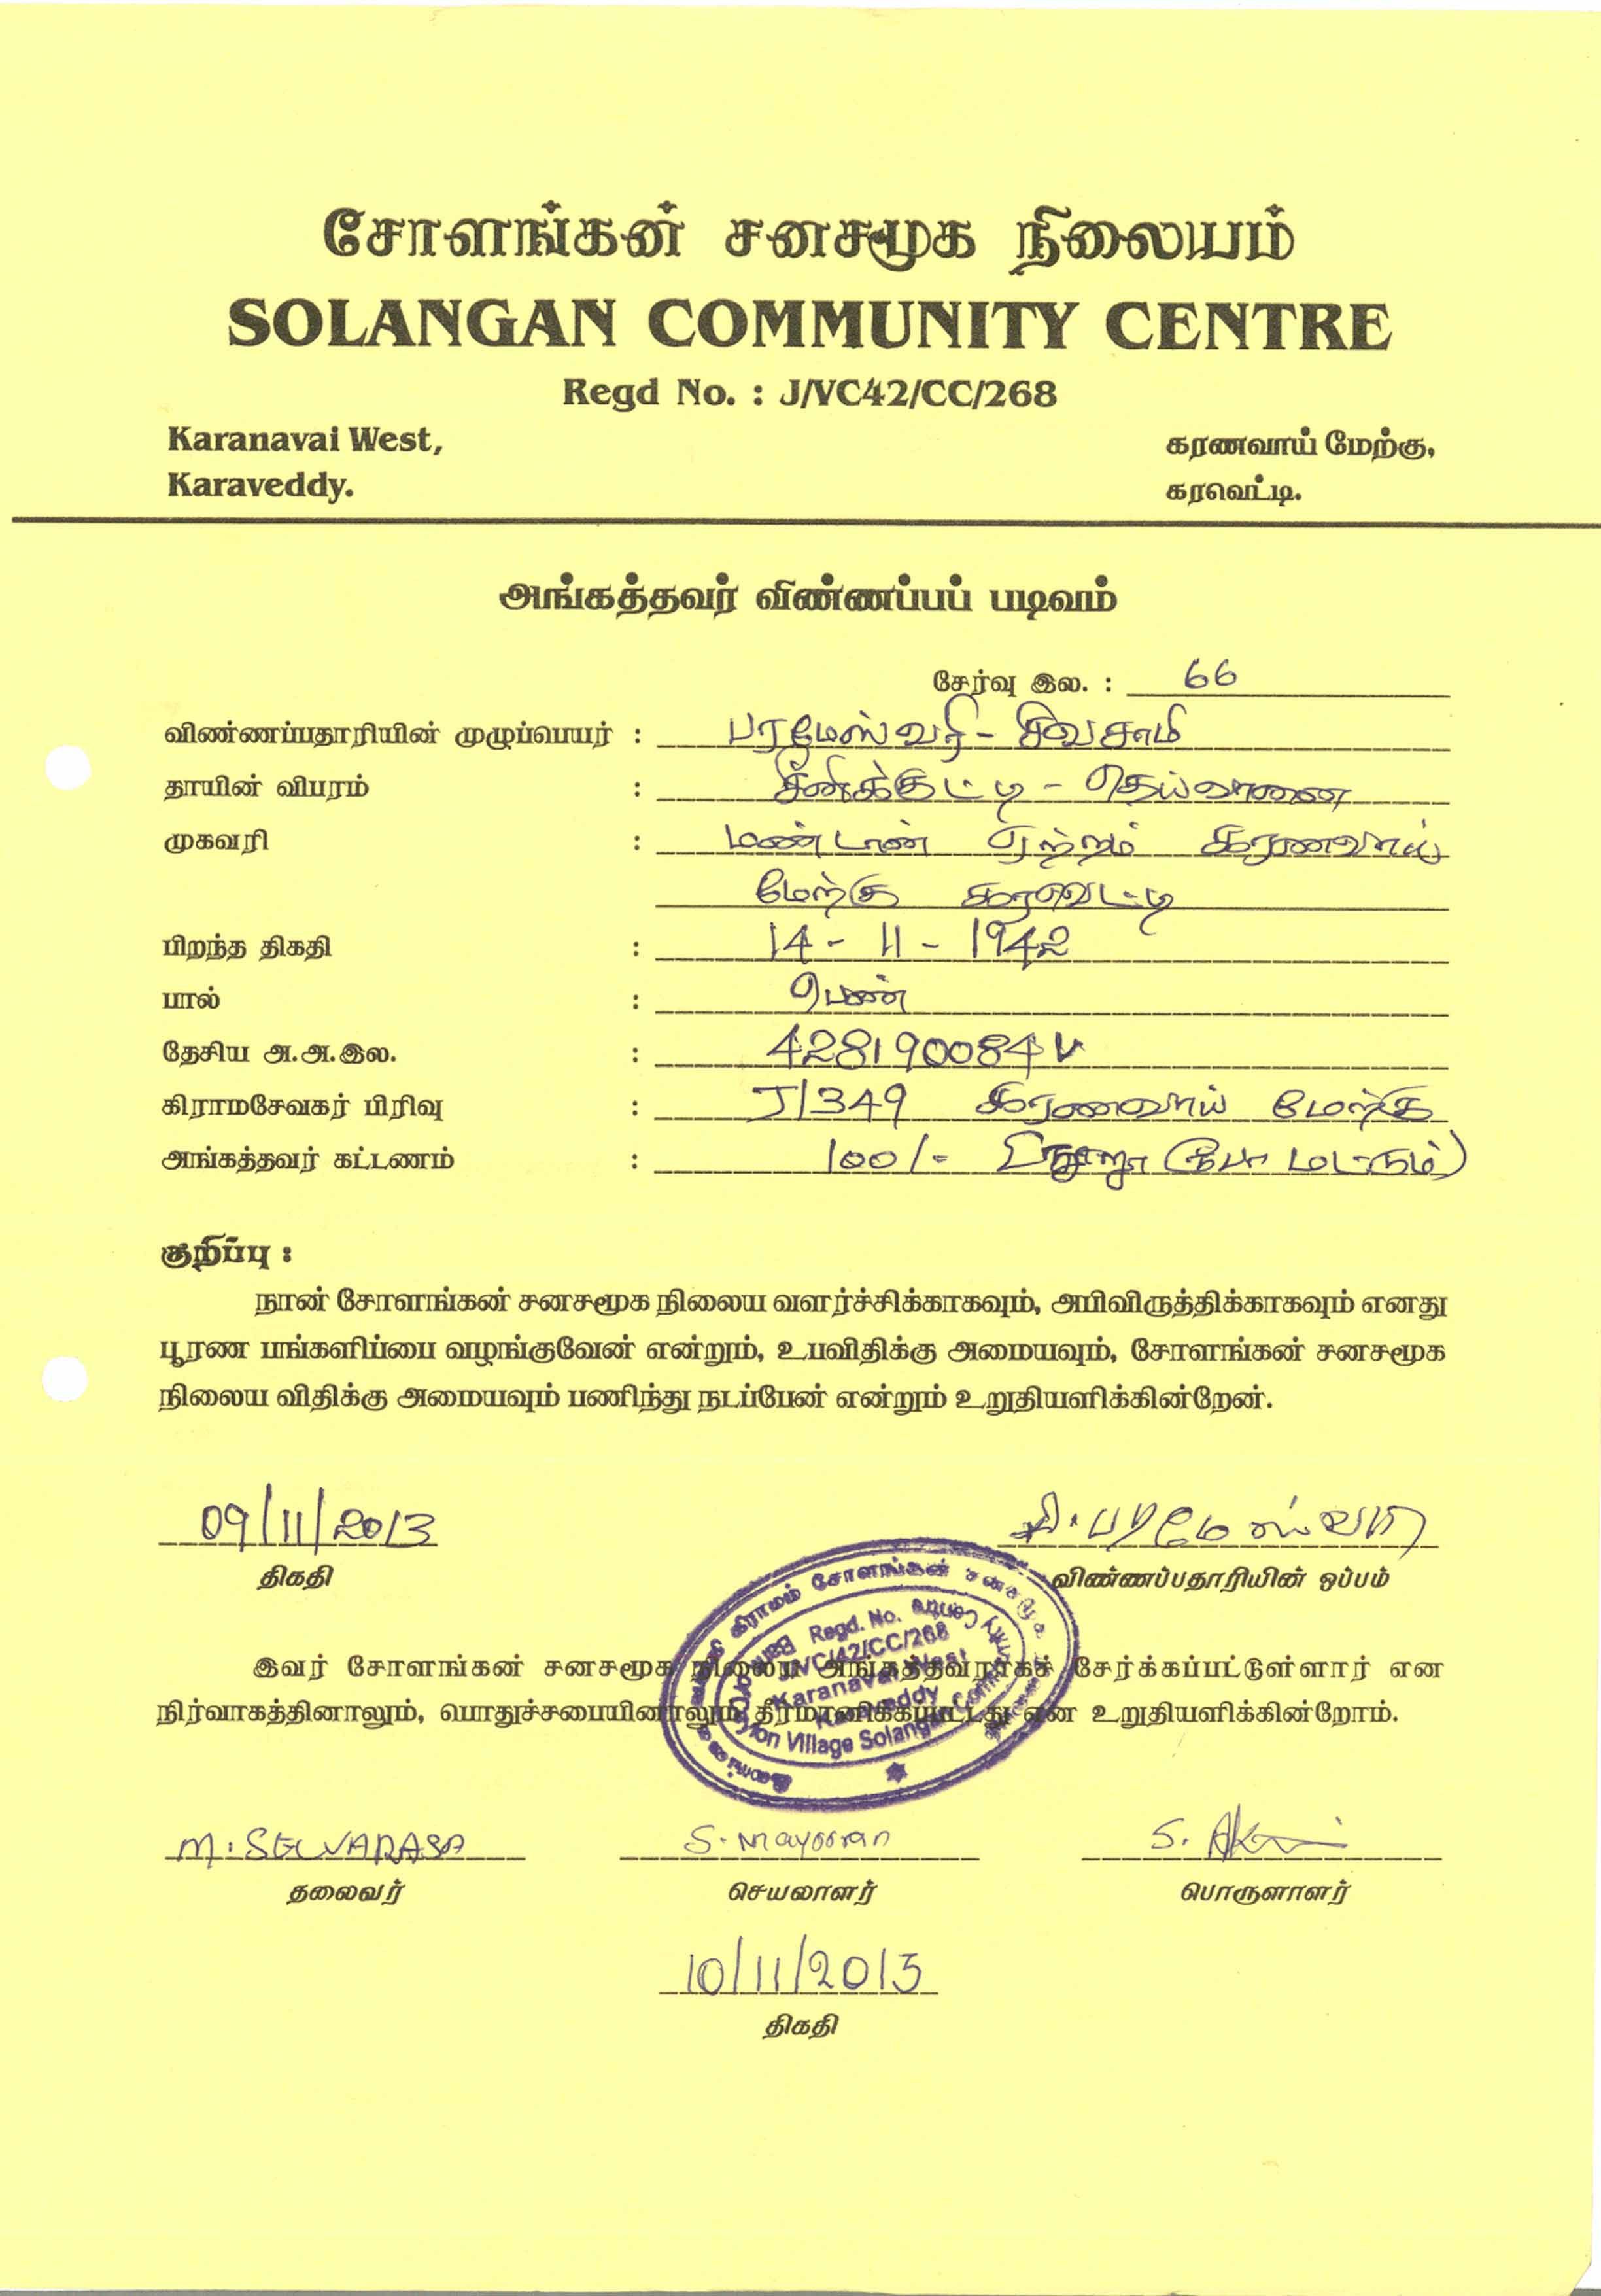 சோளங்கன் சனசமூக நிலையம்
SOLANGAN COMMUNITY CENTRE
Regd No. : J/VC42/CC/268
Karanavai West, கரணவாய் மேற்கு,
Karaveddy. கரவெட்டி.
அங்கத்தவர் விண்ணப்பப் படிவம்
சேர்வு இல. : 66
விண்ணப்பதாரியின் முழுப்பெயர் : பரமேஸ்வரி - சிவசாமி
தாயின் விபரம் : சீனிக்குட்டி - தெய்வானை
முகவரி : மண்டான் ஏற்றம் கரணவாய்
மேற்கு கரவெட்டி
பிறந்த திகதி : 14 - 11 - 1942
பால் : பெண்
தேசிய அ.அ.இல. : 428190084V
கிராமசேவகர் பிரிவு : J/349 கரணவாய் மேற்கு
அங்கத்தவர் கட்டணம் : 100/-
குறிப்பு :
நான் சோளங்கன் சனசமூக நிலைய வளர்ச்சிக்காகவும், அபிவிருத்திக்காகவும் எனது
பூரண பங்களிப்பை வழங்குவேன் என்றும், உபவிதிக்கு அமையவும், சோளங்கன் சனசமூக
நிலைய விதிக்கு அமையவும் பணிந்து நடப்பேன் என்றும் உறுதியளிக்கின்றேன்.
09/11/2013 சி.பரமேஸ்வரி
திகதி விண்ணப்பதாரியின் ஒப்பம்
கிராமம் சோளங்கன்
Regd. No.
J/VC/42/CC/268
Karanavai West
Karaveddy
Village Solangan
இவர் சோளங்கன் சனசமூக நிலைய அங்கத்தவராகச் சேர்க்கப்பட்டுள்ளார் என
நிர்வாகத்தினாலும், பொதுச்சபையினாலும் தீர்மானிக்கப்பட்டது என உறுதியளிக்கின்றோம்.
M. SELVARASA S. mayooran S.
தலைவர் செயலாளர் பொருளாளர்
10/11/2013
திகதி